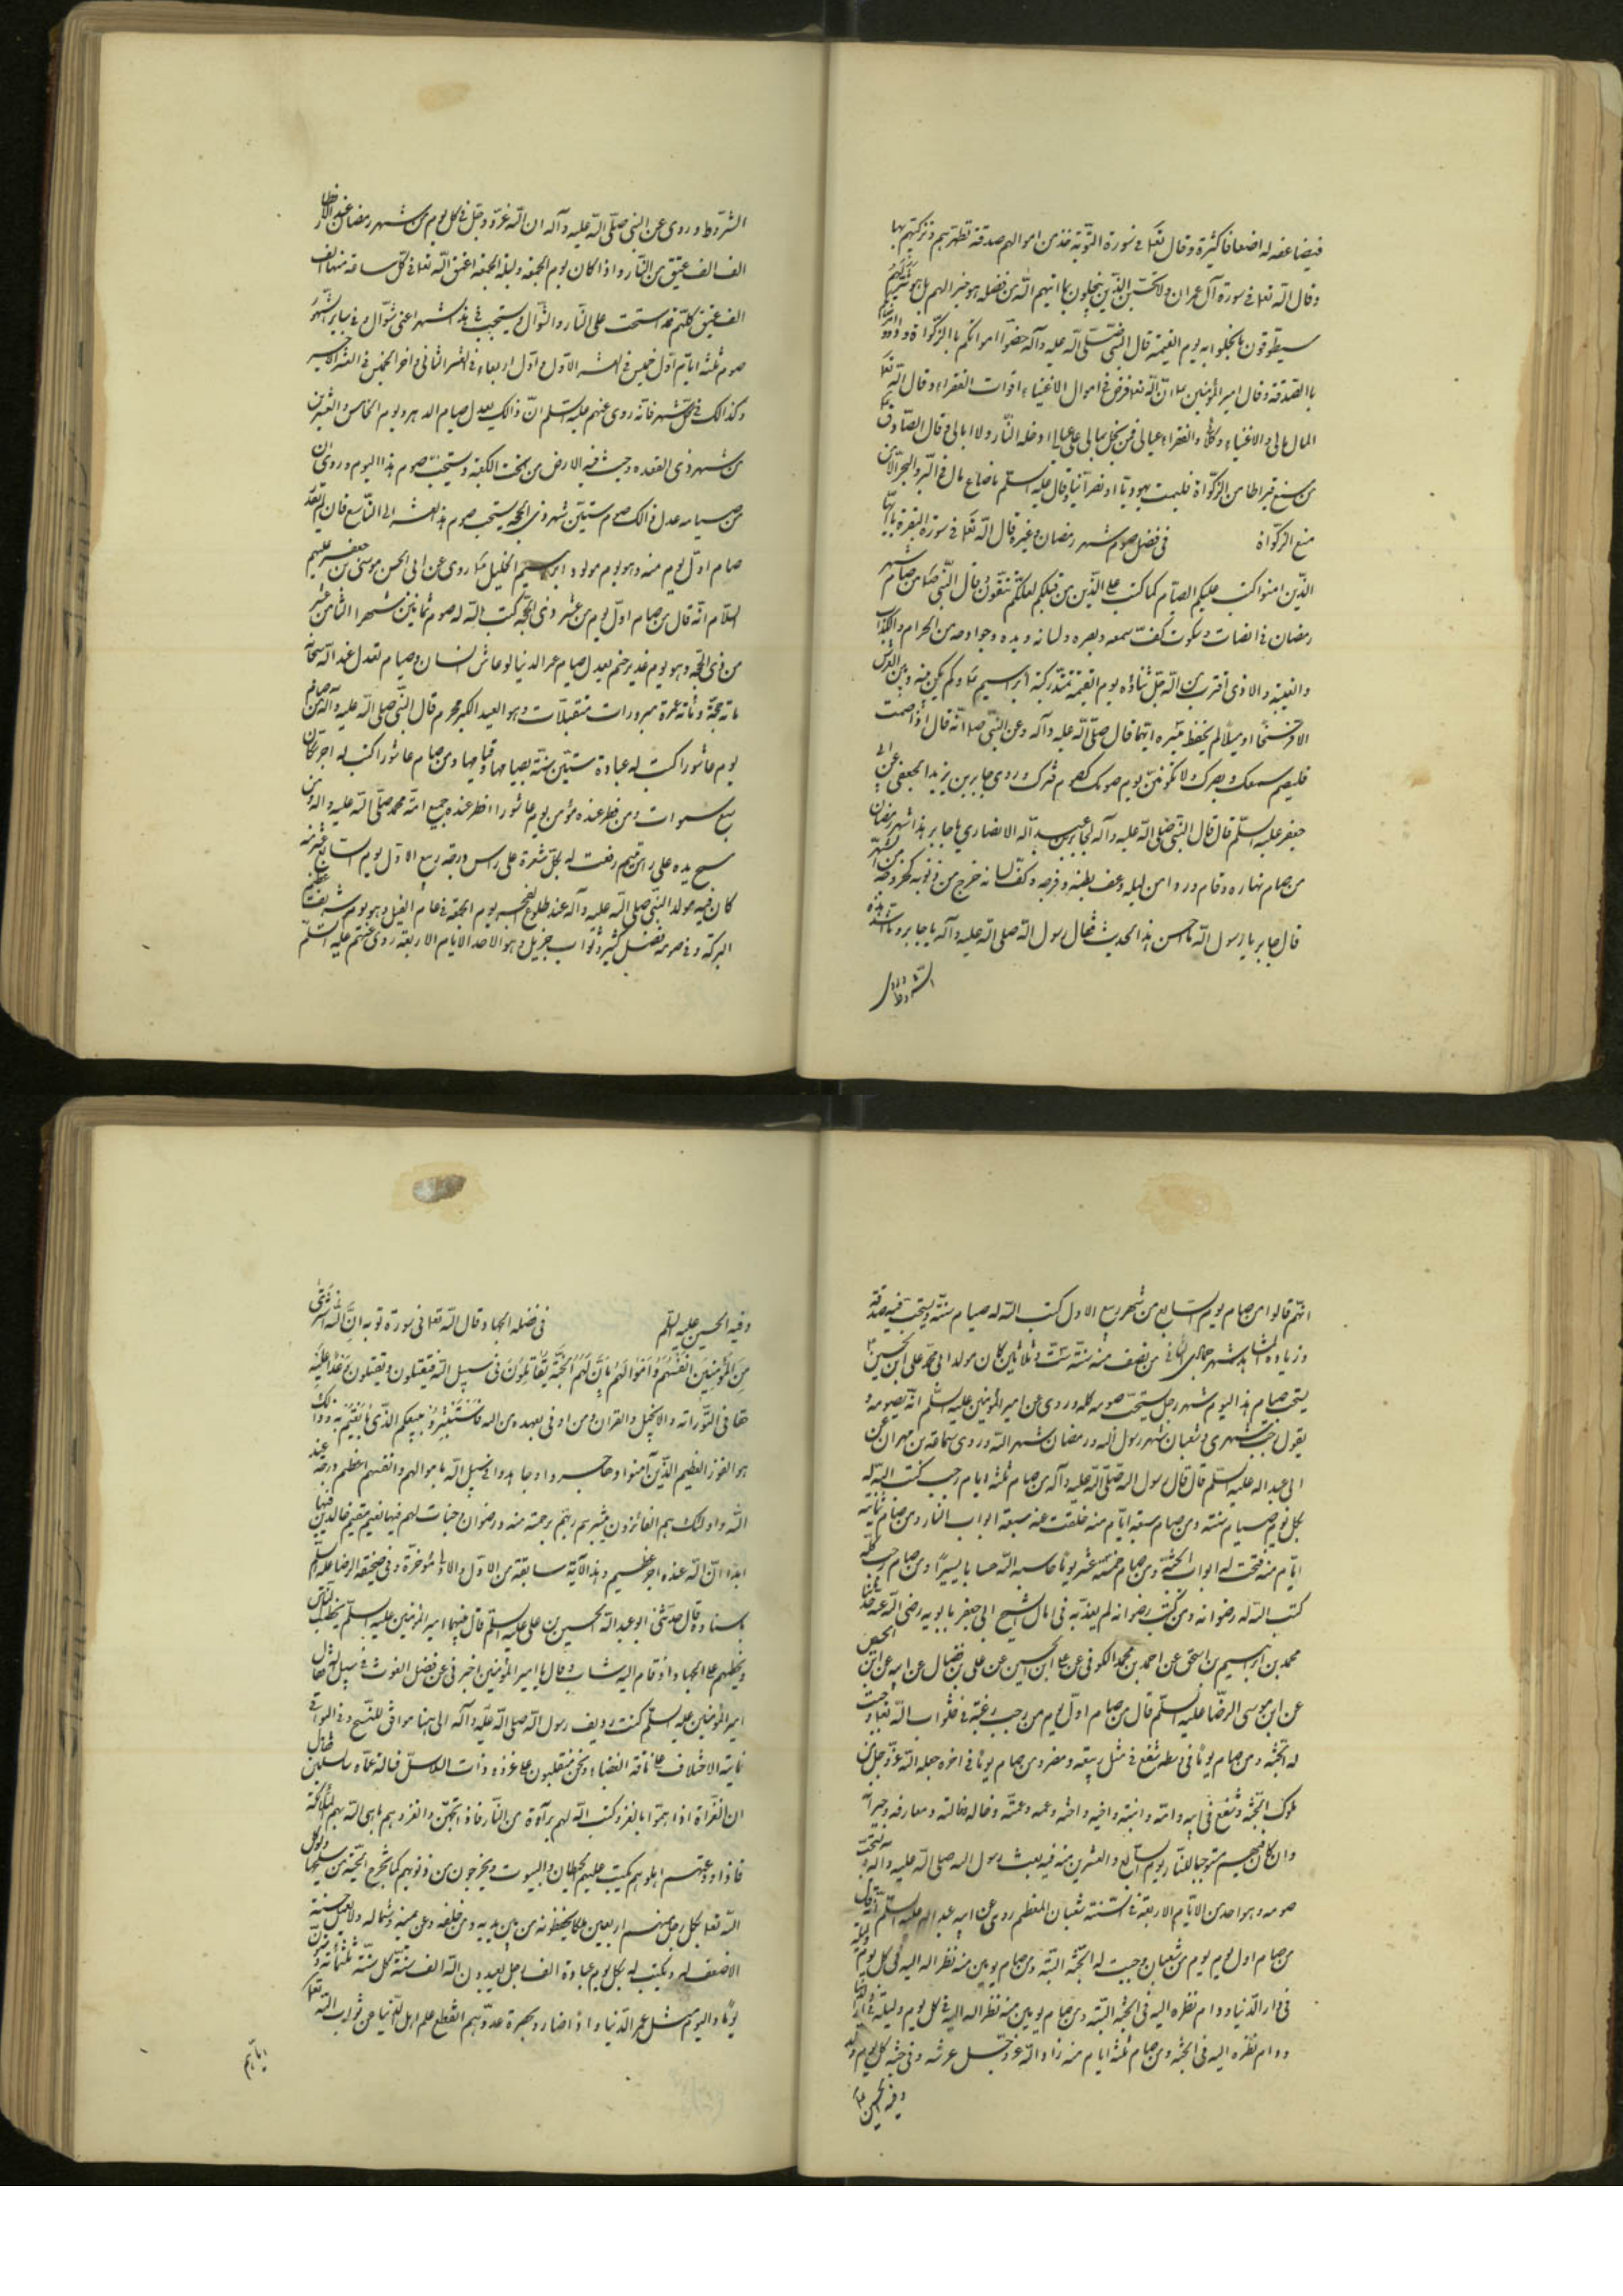 فيضاعفه له اضعافا كثيرة وقال تعا فى سورة التوبة خذ من اموالهم صدقة تطهرهم وتزكيهم بها
وقال الله تعا فى سورة آل عمران ولا تحسبن الذين يبخلون بما اتيهم الله من فضله هو خير الهم بل هو شر لهم
سيطوقون ما بخلوا به يوم القيمة قال النبى صلى الله عليه وآله حصنوا اموالكم باالزكواة وداووا
باالصدقة وقال امير المؤمنين ان الله تعا فرض فى اموال الاغنياء اقوات الفقراء وقال الله تعا
المال مالى والاغنياء وكلائى والفقراء عيالى فمن بخل بمالى على عيالى ادخله النار ولا ابالى قال الصادق
من منع قيراطا من الزكواة فليمت يهوديا او نصرآنيا وقال عليه السلم ما ضاع مال فى البر والبحر الا من
منع الزكواة فى فضل صوم شهر رمضان وغيره قال الله تعا فى سورة البقرة يا ايها
الذين امنوا كتب عليكم الصيام كما كتب على الذين من قبلكم لعلكم تتقون قال النبى من صام شهر
رمضان فى انصات وسكوت وكف سمعه وبصره ولسانه ويده وجوارحه من الحرام والكذب
والغيبة والاذى اقترب من الله جل ثناؤه يوم القيمة
فليصم سمعك وبصرك ولا تكونن يوم صومك كصوم فطرك وروى جابر بن يزيد الجعفى عن ابى
جعفر عليه السلم قال قال النبى صلى الله عليه وآله لجابر بن عبد الله الانصارى يا جابر هذا شهر رمضان
من صام نهاره وقام وردا من ليله وعف بطنه وفرجه وكف لسانه خرج من ذنوبه كخروجه من الشهر
قال جابر يا رسول الله ما احسن هذا الحديث فقال رسول الله صلى الله عليه وآله يا جابر وما اشد هذه
الشروط وروى
الشروط وروى عن النبى صلى الله عليه وآله ان الله عز وجل فى كل يوم من شهر رمضان عند الافطار
الف الف عتيق من النار واذا كان يوم الجمعه وليلة الجمعه اعتق الله تعا فى كل ساعة منها الف
الف عتيق كلهم قد استحق على النار والنوال ويستحب فى هذا الشهر اعنى شوال وفى ساير الشهر
صوم ثلثة ايام اول خميس فى العشر الاول واول اربعاء فى العشر الثانى واخر الخميس فى العشر الاخير
وكذالك فى كل شهر فانه روى عنهم عليه السلم ان ذالك يعدل صيام الدهر ويوم الخامس والعشرين
من شهر ذى القعده دحيت فيه الارض من تحت الكعبة ويستحب صوم هذا اليوم وروى ان
من صيامه عدل ذالك صوم ستين شهر ذى الحجه يستحب صوم هذا العشر الى التاسع فان لم يقدر
صام اول يوم منه وهو يوم مولود ابرهيم الخليل روى عن ابى الحسن موسى بن جعفر عليهم
السلام انه قال من صام اول يوم من عشر ذى الحجة كتب الله له صوم ثمانين شهرا الثامن عشر
من ذى الحجة وهو يوم غدير خم يعدل صيام عمر الدنيا لو عاش انسان وصيام تعدل عند الله سبحانه
مائة حجة ومائة عمرة مبرورات متقبلات وهو العيد الاكبر محرم قال النبى صلى الله عليه وآله من صام
يوم عاشورا كتب له عبادة ستين سنة بصيامها وقيامها ومن صام عاشورا كتب له اجر
سبع سموات ومن فطر عنده مؤمن يوم عاشورا افطر عنده جميع امة محمد صلى الله عليه وآله ومن
مسح يده على راس يتيم رفعت له بكل شعرة على راس درجة ربيع الاول يوم السابع عشر منه
كان فيه مولد النبى صلى الله عليه وآله عند طلوع الفجر يوم الجمعة فى عام الفيل وهو يوم شريف عظيم
البركة وفى صومه فضل كثير وثواب جزيل وهو الاحد الايام الاربعة روى عنهم عليه السلم
انهم قالوا من صام يوم السابع من شهر ربيع الاول كتب الله له صيام سنة ويستحب فيه صدقة
وزيارة المشاهد شهر جمادى الثانى من نصف منه سنة ست وثلاثين كان مولد ابى محمد على ابن الحسين
يستحب صيام هذا اليوم شهر رجب يستحب صومه كله وروى عن امير المؤمنين عليه السلم انه يصومه و
يقول رجب شهرى وشعبان شهر رسول الله ورمضان شهر الله وروى سماعة بن مهران عن
ابى عبد الله عليه السلم قال قال رسول الله صلى الله عليه وآله من صام ثلثة ايام رجب كتب الله له
بكل يوم صيام سنة ومن صام سبعة ايام منه غلقت عنه سبعة ابواب النار ومن صام ثمانية
ايام منه فتحت له ابواب الجنة ومن صام خمسة عشر يوما حاسبه الله حسابا يسيرا ومن صام رجب كله
كتب الله له رضوانه ومن كتب رضوانه لم يعذبه فى امال الشيخ ابى جعفر بابويه رضى الله عنه حدثنا
محمد بن ابرهيم بن اسحق عن احمد بن محمد الكوفى عن على ابن الحسين عن على بن فضال عن ابيه عن ابى الحسن
عن ابن موسى الرضا عليه السلم قال من صام اول يوم من رجب رغبة فى ثواب الله تعا وجبت
له الجنة ومن صام يوما فى وسطه شفع فى مثل ربيعة ومضر ومن صام يوما فى اخره جعله الله عز وجل من
ملوك الجنة وشفع فى ابيه وامه وابنه وابنته واخيه واخته وعمه وعمته وخاله وخالته ومعارفه وجيرانه
وان كان فيهم مستوجبا للنار يوم السابع والعشرين منه فيه بعث رسول الله صلى الله عليه وآله يستحب
صومه وهو احد من الايام الاربعة فى السنة شعبان المعظم روى عن ابى عبد الله عليه السلم انه قال
من صام اول يوم يوم من شعبان وجبت له الجنة البتة ومن صام يومين منه نظر الله اليه فى كل يوم وليلة
فى دار الدنيا ودام نظره اليه فى الجنة البتة ومن صام يومين منه نظر الله اليه فى كل يوم وليلة فى دار الدنيا
ودام نظره اليه فى الجنة ومن صام ثلثة ايام منه زار الله عز وجل عرشه وفى جنة كل يوم
وفيه الحسين
وفيه الحسين عليه السلم فى فضله الجهاد قال الله تعا فى سورة توبه ان الله اشترى
من المؤمنين انفسهم واموالهم بان لهم الجنة يقاتلون فى سبيل الله فيقتلون ويقتلون وعدا عليه
حقا فى التوراته والانجيل والقران ومن اوفى بعهده من الله فاستبشروا ببيعكم الذى بايعتم به وذالك
هو الفوز العظيم الذين آمنوا وهاجروا وجاهدوا فى سبيل الله باموالهم وانفسهم اعظم درجة عند
الله واولئك هم الفائزون يبشرهم ربهم برحمة منه ورضوان وجنات لهم فيها نعيم مقيم خالدين فيها
ابدا ان الله عنده اجر عظيم وهذا الآية سابقة من الاول والا مؤخرة وفى صحيفة الرضا عليه السلم
باسناده قال حدثنى ابو عبد الله الحسين بن على عليه السلم قال بينهما امير المؤمنين عليه السلم يخطب الناس
ويحثهم على الجهاد اذ قام اليه شاب وقال يا امير المؤمنين اخبرنى عن فضل الغزوة فى سبيل الله فقال
امير المؤمنين عليه السلم كنت رديف رسول الله صلى الله عليه وآله
ناقة الغضباء ونحن منقلبون على غزوه ذات السلاسل فسالته عما سالتنى فقال
ان الغزاة اذا هموا بالغزو كتب الله لهم برآءة من النار فاذا تجهزوا لغزوهم باهى الله بهم الملائكة
فاذا ودعتهم اهلوهم بكيت عليهم الحيطان والبيوت ويخرجون من ذنوبهم كما تخرج الحية من سلخها ويوكل
الله تعا بكل رجل منهم اربعين ملكا يحفظونه من بين يديه ومن خلفه وعن يمينه وشماله ولا يعمل حسنة
الا ضعف له ويكتب له بكل يوم عبادة الف رجل يعبدون الله الف سنة كل سنة ثلثمائة وستون
يوما واليوم مثل عمر الدنيا واذا صاروا بحضرة عدوهم انقطع علم اهل الدنيا عن ثواب الله تعا
اياهم